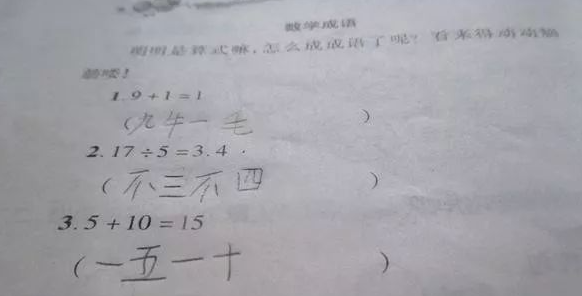 数学成语
明明是算式嘛，怎么成成语了呢？看来得动动脑
筋喽！
1.9+1=1
（九牛一毛）
2.17÷5=3.4
（不三不四）
3.5+10=15
（一五一十）